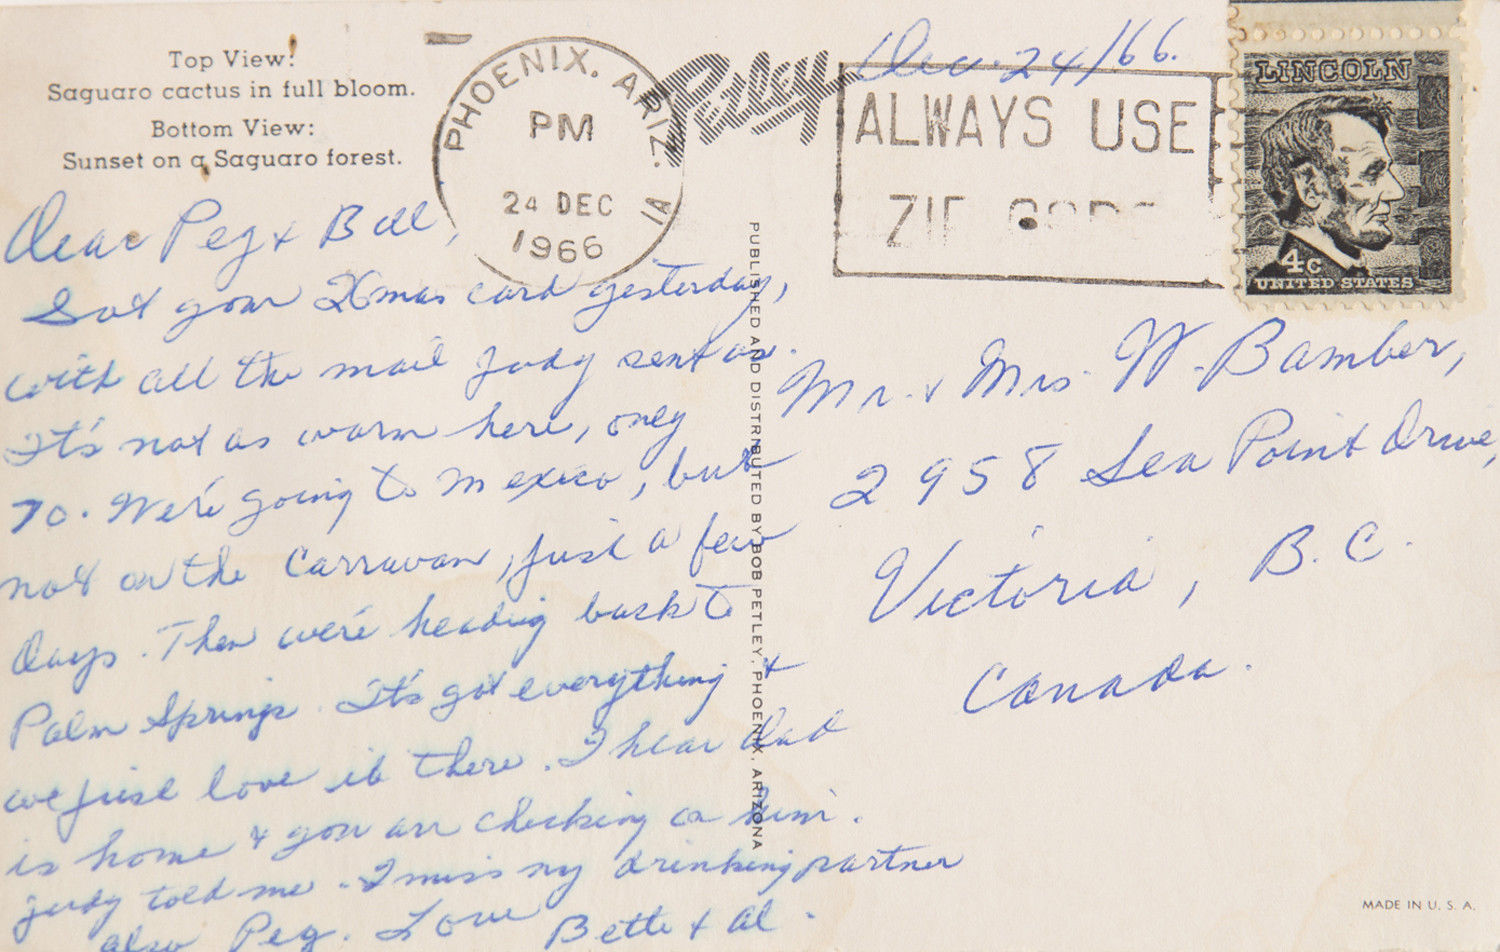 Top View:
Saguaro cactus in full bloom.
Bottom View:
Sunset on a Saguaro forest.
PHOENIX, ARIZ.
PM
24 DEC
1966
1A
Petley
Dec. 24/66.
ALWAYS USE
ZIP CODE
LINCOLN
4c
UNITED STATES
Dear Peg & Bill,
Got your Xmas card yesterday,
with all the mail Judy sent us.
It's not as warm here, only
70. We're going to Mexico, but
not on the Carravan, just a few
days. Then we're heading back to
Palm Springs. It's got everything &
we just love it there. I hear Dad
is home & you are checking on him.
Judy told me. I miss my drinking partner
also Peg. Love Bette & Al.
PUBLISHED AND DISTRIBUTED BY BOB PETLEY, PHOENIX, ARIZONA
Mr. & Mrs. W. Bamber,
2958 Sea Point Drive,
Victoria, B.C.
Canada.
MADE IN U. S. A.